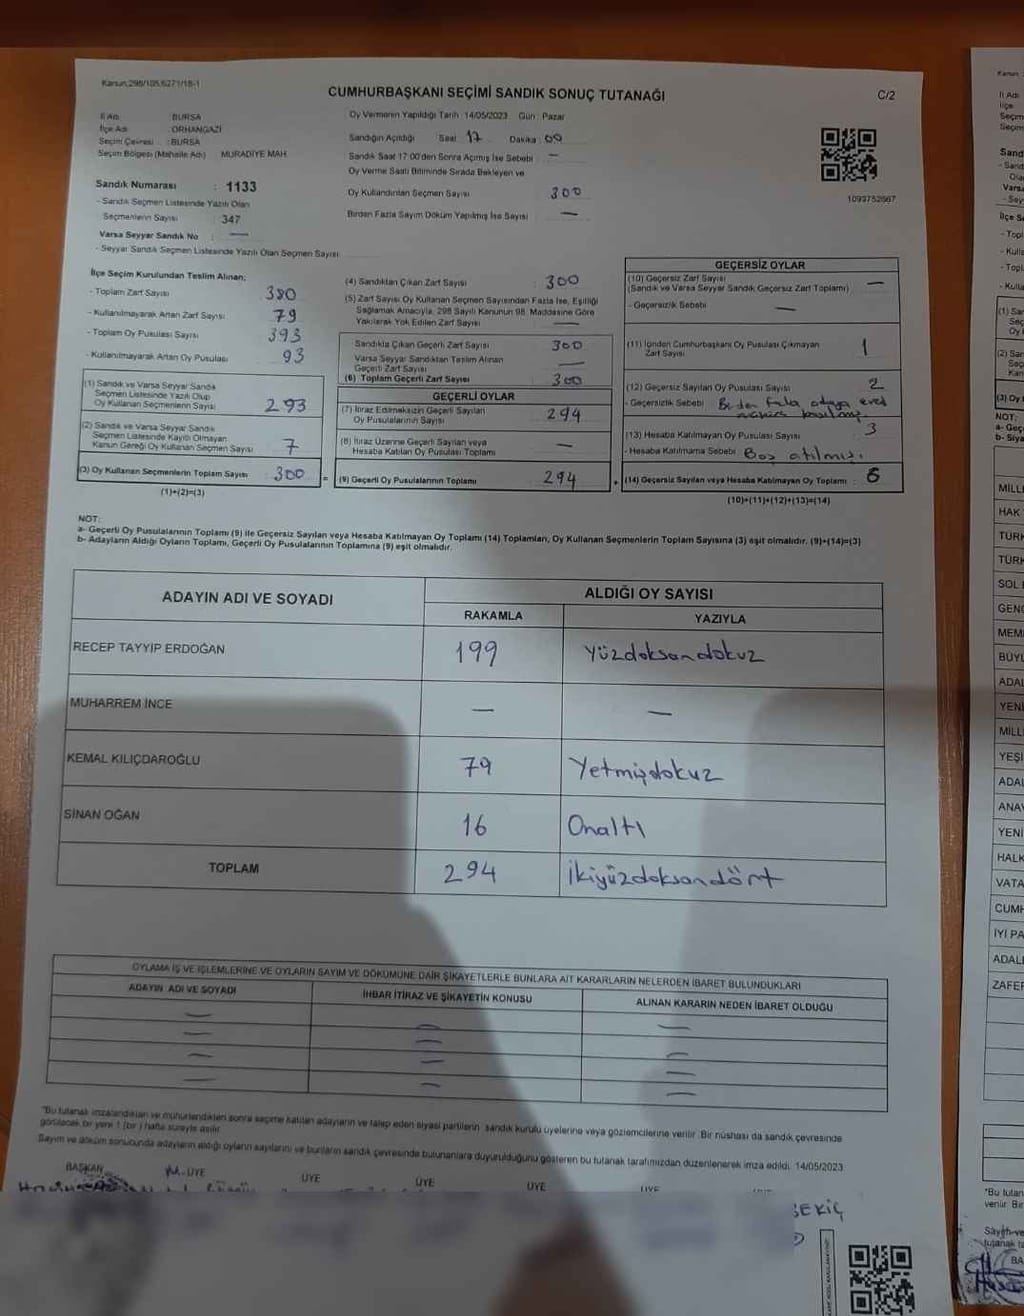 Kanun;298/105;6271/18-1
CUMHURBAŞKANI SEÇİMİ SANDIK SONUÇ TUTANAĞI
C/2
İl Adı : BURSA
İlçe Adı : ORHANGAZİ
Seçim Çevresi : BURSA
Seçim Bölgesi (Mahalle Adı) MURADİYE MAH.
Oy Vermenin Yapıldığı Tarih 14/05/2023 Gün : Pazar
Sandığın Açıldığı Saat 17 Dakika : 00
Sandık Saat 17:00'den Sonra Açılmış İse Sebebi —
Oy Verme Saati Bitiminde Sırada Bekleyen ve
Oy Kullandırılan Seçmen Sayısı 300
Birden Fazla Sayım Döküm Yapılmış İse Sayısı —
1093752567
Sandık Numarası : 1133
- Sandık Seçmen Listesinde Yazılı Olan
Seçmenlerin Sayısı : 347
Varsa Seyyar Sandık No : —
- Seyyar Sandık Seçmen Listesinde Yazılı Olan Seçmen Sayısı
İlçe Seçim Kurulundan Teslim Alınan;
- Toplam Zarf Sayısı 380
- Kullanılmayarak Artan Zarf Sayısı 79
- Toplam Oy Pusulası Sayısı 393
- Kullanılmayarak Artan Oy Pusulası 93
(1) Sandık ve Varsa Seyyar Sandık
Seçmen Listesinde Yazılı Olup
Oy Kullanan Seçmenlerin Sayısı 293
(2) Sandık ve Varsa Seyyar Sandık
Seçmen Listesinde Kayıtlı Olmayan
Kanun Gereği Oy Kullanan Seçmen Sayısı 7
(3) Oy Kullanan Seçmenlerin Toplam Sayısı 300
(1)+(2)=(3)
(4) Sandıktan Çıkan Zarf Sayısı 300
(5) Zarf Sayısı Oy Kullanan Seçmen Sayısından Fazla İse, Eşitliği
Sağlamak Amacıyla, 298 Sayılı Kanunun 98. Maddesine Göre
Yakılarak Yok Edilen Zarf Sayısı —
Sandıkta Çıkan Geçerli Zarf Sayısı 300
Varsa Seyyar Sandıktan Teslim Alınan
Geçerli Zarf Sayısı —
(6) Toplam Geçerli Zarf Sayısı 300
GEÇERLİ OYLAR
(7) İtiraz Edilmeksizin Geçerli Sayılan
Oy Pusulalarının Sayısı 294
(8) İtiraz Üzerine Geçerli Sayılan veya
Hesaba Katılan Oy Pusulası Toplamı —
(9) Geçerli Oy Pusulalarının Toplamı 294
GEÇERSİZ OYLAR
(10) Geçersiz Zarf Sayısı
(Sandık ve Varsa Seyyar Sandık Geçersiz Zarf Toplamı) —
- Geçersizlik Sebebi —
(11) İçinden Cumhurbaşkanı Oy Pusulası Çıkmayan
Zarf Sayısı 1
(12) Geçersiz Sayılan Oy Pusulası Sayısı 2
- Geçersizlik Sebebi Birden fazla adaya evet
mührü basılmış
(13) Hesaba Katılmayan Oy Pusulası Sayısı 3
- Hesaba Katılmama Sebebi Boş atılmış.
(14) Geçersiz Sayılan veya Hesaba Katılmayan Oy Toplamı : 6
(10)+(11)+(12)+(13)=(14)
NOT:
a- Geçerli Oy Pusulalarının Toplamı (9) ile Geçersiz Sayılan veya Hesaba Katılmayan Oy Toplamı (14) Toplamları, Oy Kullanan Seçmenlerin Toplam Sayısına (3) eşit olmalıdır. (9)+(14)=(3)
b- Adayların Aldığı Oyların Toplamı, Geçerli Oy Pusulalarının Toplamına (9) eşit olmalıdır.
ADAYIN ADI VE SOYADI
ALDIĞI OY SAYISI
RAKAMLA YAZIYLA
RECEP TAYYİP ERDOĞAN 199 Yüzdoksandokuz
MUHARREM İNCE — —
KEMAL KILIÇDAROĞLU 79 Yetmişdokuz
SİNAN OĞAN 16 Onaltı
TOPLAM 294 İkiyüzdoksandört
OYLAMA İŞ VE İŞLEMLERİNE VE OYLARIN SAYIM VE DÖKÜMÜNE DAİR ŞİKAYETLERLE BUNLARA AİT KARARLARIN NELERDEN İBARET BULUNDUKLARI
ADAYIN ADI VE SOYADI İHBAR İTİRAZ VE ŞİKAYETİN KONUSU ALINAN KARARIN NEDEN İBARET OLDUĞU
— — —
— — —
— — —
— — —
"Bu tutanak imzalandıktan ve mühürlendikten sonra seçime katılan adayların ve talep eden siyasi partilerin sandık kurulu üyelerine veya gözlemcilerine verilir. Bir nüshası da sandık çevresinde
görülecek bir yere 1 (bir) hafta süreyle asılır.
Sayım ve döküm sonucunda adayların aldığı oyların sayılarını ve bunların sandık çevresinde bulunanlara duyurulduğunu gösteren bu tutanak tarafımızdan düzenlenerek imza edildi. 14/05/2023
BAŞKAN M.ÜYE ÜYE ÜYE ÜYE ÜYE
Kanun
İl Adı
İlçe
Seçim
Seçim
Sand
MİLLİ
HAK
TÜRK
TÜRK
SOL
GENÇ
MEM
BÜYÜ
ADAL
YENİ
MİLLİ
YEŞİ
ADAL
ANAV
YENİ
HALK
VATA
CUMH
İYİ PA
ADAL
ZAFER
"Bu tutan
verilir. Bir